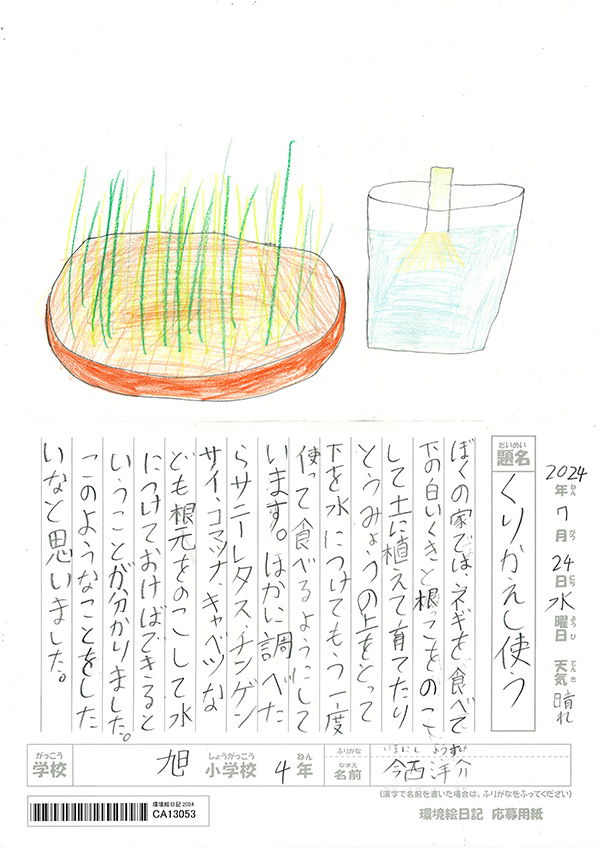 2024年ねん 7月がつ 24日にち 水曜日ようび 天気てんき 晴れ
題名だいめい くりかえし使う
ぼくの家では、ネギを食べて
下の白いくきと根っこをのこ
して土に植えて育てたり
とうみょうの上をとって
下を水につけてもう一度
使って食べるようにして
います。ほかに調べた
らサニーレタス、チンゲン
サイ、コマツナ、キャベツな
ども根元をのこして水
につけておけばできると
いうことが分かりました。
このようなことをした
いなと思いました。
がっこう しょうがっこう ねん ふりがな いまにし ようすけ
学校 旭 小学校 4年 名前なまえ 今西洋介
(漢字で名前を書いた場合は、ふりがなをふってください)
環境絵日記 2024
CA13053
環境絵日記 応募用紙